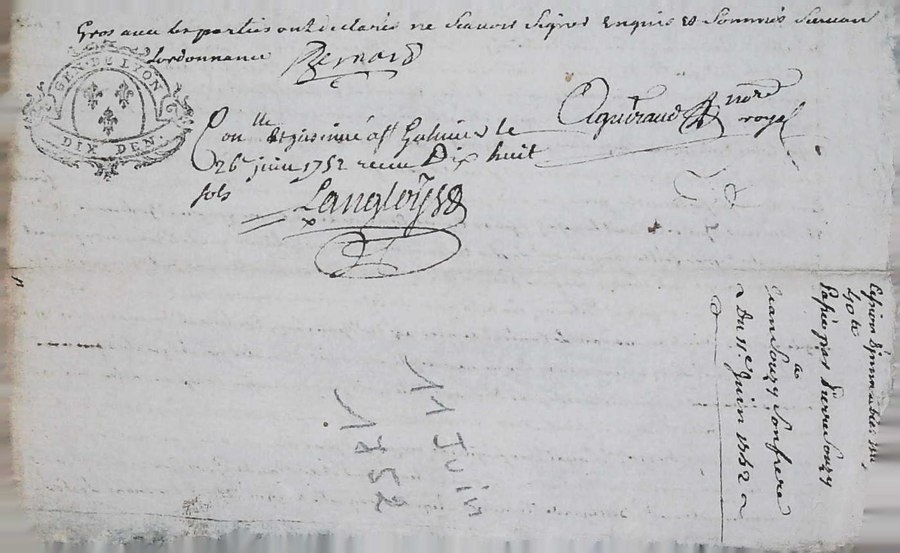 Gros aux les parties ont declaré ne scavoir signer enquis et sommés suivan
lordonnance Bernard
GEN. DE LYON
DIX DEN.
Aguiraud nore
royal
Con.lle et insinué a St Galmier le
26e juin 1752 receu Dix huit
sols
Langloys
Cession d'immeubles
passée par Pierre Souzy
a
Jean Souzy son frere
Du 11e Juin 1752
11 JUIN
1752